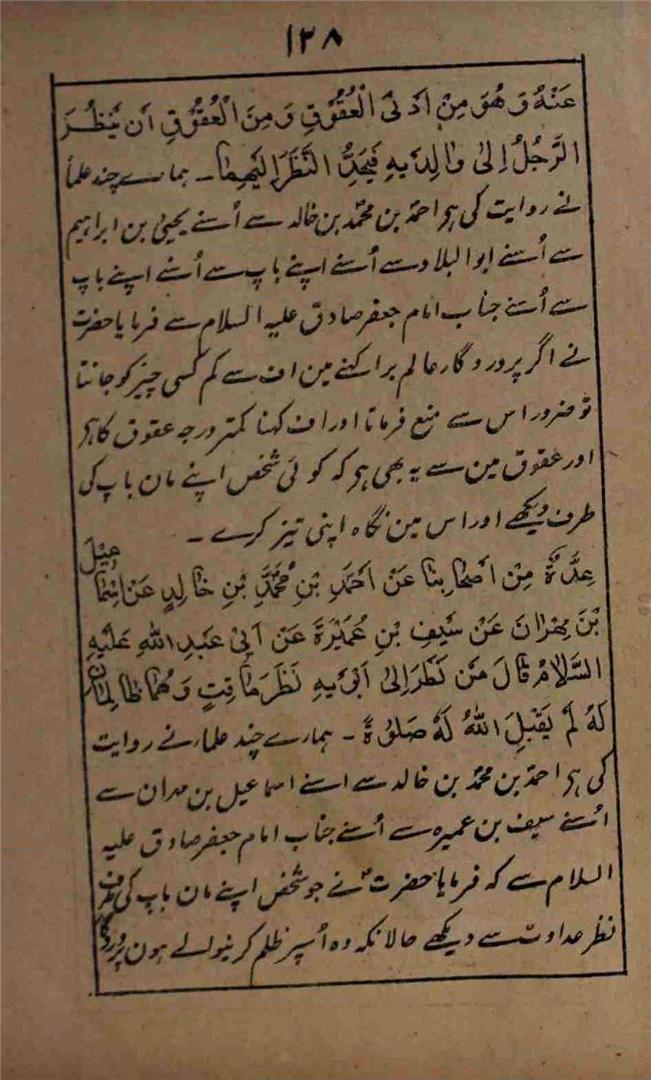 ۱۳۸
عَنْهُ وَهُوَ مِنْ اَدْنَی الْعُقُوْقِ وَمِنَ الْعُقُوْقِ اَن یَّنْظُرَ
الرَّجُلُ اِلیٰ وَالِدَیهِ فَیَحِدُّ النَّظَرَ اِلَیْهِمَا۔ ہمارے چند علما
نے روایت کی ہر احمد بن محمد بن خالد سے اُسنے یحییٰ بن ابراہیم
سے اُسنے ابو البلاد سے اُسنے اپنے باپ سے اُسنے اپنے باپ
سے اُسنے جناب امام جعفر صادق علیہ السلام سے فرمایا حضرت
نے اگر پروردگار عالم برا کہنے مین اف سے کم کسی چیز کو جانتا
تو ضرور اس سے منع فرماتا اور اف کہنا کمتر درجہ عقوق کا ہر
اور عقوق مین سے یہ بھی ہر کہ کوئی شخص اپنے مان باپ کی
طرف دیکھے اور اس مین نگاہ اپنی تیز کرے ۔
عِدَّةٌ مِنْ اَصْحَابِنَا عَنْ اَحْمَدَ بْنِ مُحَمَّدِ بْنِ خَالِدٍ عَنْ اِسْمَاعِیْلَ
بْنِ مِهْرَانَ عَنْ سَیْفِ بْنِ عُمَیْرَةَ عَنْ اَبِیْ عَبْدِ اللهِ عَلَیْهِ
السَّلَامُ قَالَ مَنْ نَظَرَ اِلیٰ اَبَوَیهِ نَظَرَ مَاقِتٍ وَهُمَا ظَالِمَانِ
لَهُ لَمْ یَقْبَلِ اللهُ لَهُ صَلٰوةً ۔ ہمارے چند علمار نے روایت
کی ہر احمد بن محمد بن خالد سے اسنے اسماعیل بن مہران سے
اُسنے سیف بن عمیرہ سے اُسنے جناب امام جعفر صادق علیہ
السلام سے کہ فرمایا حضرت نے جو شخص اپنے مان باپ کی طرف
نظر عداوت سے دیکھے حالانکہ وہ اُسپر ظلم کرنیوالے ہون پروردگا